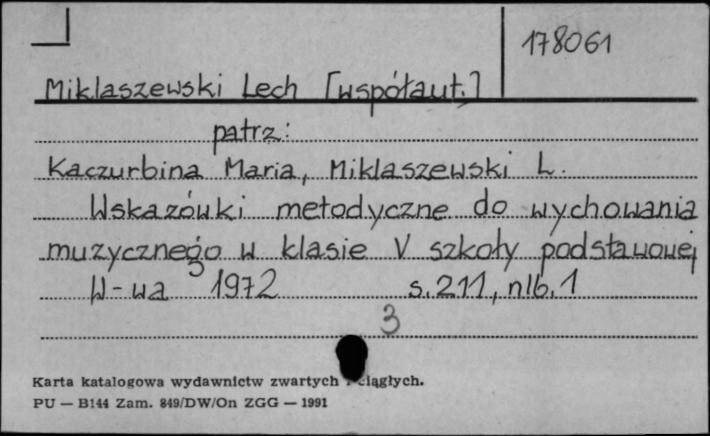 178061
Miklaszewski Lech [współaut.]
patrz:
Kaczurbina Maria, Miklaszewski L.
Wskazówki metodyczne do wychowania
muzycznego w klasie V szkoły podstawowej
W-wa 1972 s. 211, nlb. 1
3
Karta katalogowa wydawnictw zwartych i ciągłych.
PU — B144 Zam. 849/DW/On ZGG — 1991